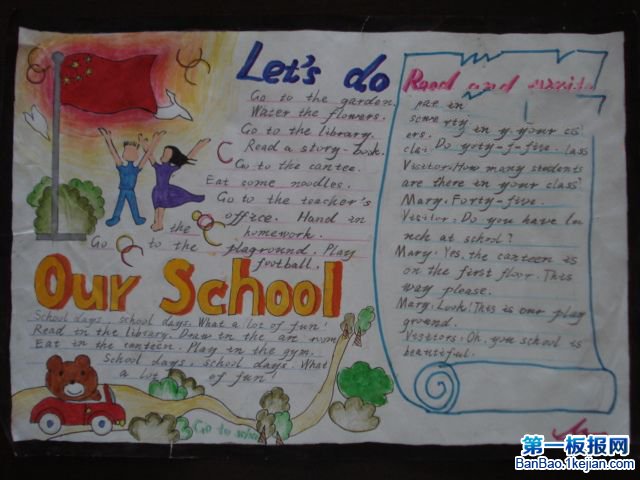 Let's do
Go to the garden.
Water the flowers.
Go to the library.
Read a story-book.
Go to the cantee.
Eat some noodles.
Go to the teacher's
office. Hand in
the homework.
Go to the
plaground. Play
football.
Our School
School days, school days. What a lot of fun!
Read in the library. Draw in the room
Eat in the canteen. Play in the gym.
School days, school days. What
a lot of fun!
Go to
Read and
in
ers. in y your
Do
class
Visitor: How many students
are there in your class?
Mary: Forty-five.
Visitor: Do you have lu
nch at school?
Mary: Yes, the canteen is
on the first floor. This
way please.
Mary: Look! This is our play
ground.
Visitors: Oh, you school is
beautiful.
第一板报网
BanBao.1kejian.com